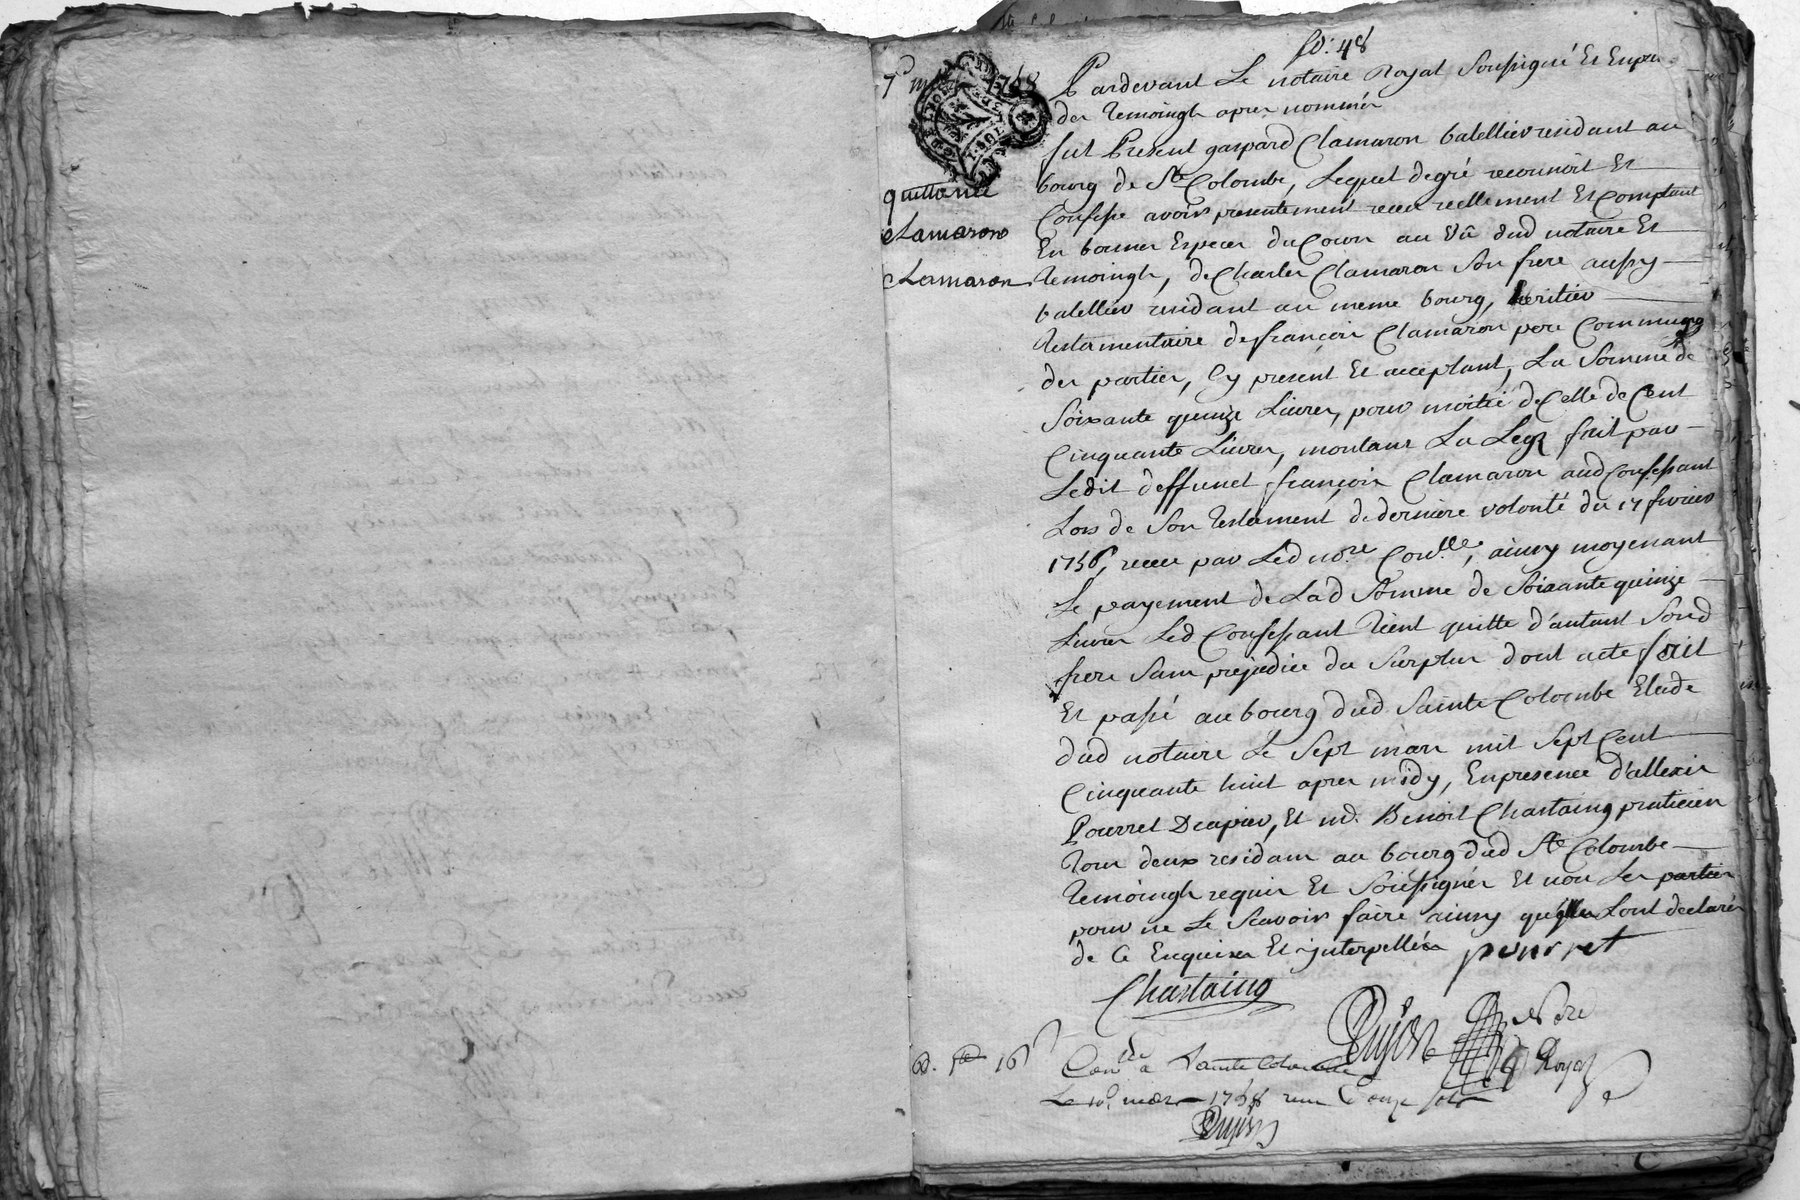 fo: 48
7 mars 1758
quittance
Clamaron
Clamaron
Pardevant Le notaire Royal Soussigné Et Enpn.ce
des temoingh apres nommés
fut Present gaspard Clamaron batellier residant au
bourg de Ste Colombe, Lequel degré reconnoit Et
Confesse avoir presentement receu reellement Et Comptant
En bonnes Especes du Cours au Vû dud notaire Et
temoingh, de Charles Clamaron Son frere aussy
batellier residant au meme bourg, heritier
testamentaire de françois Clamaron pere Commung
des parties, Cy present Et acceptant, La Somme de
Soixante quinze Livres, pour moitié de Celle de Cent
Cinquante Livres, montant La Legz fait par
Ledit deffunct françois Clamaron aud Confessant
Lors de Son testament de derniere volonté du 17 fevrier
1756, receu par Led nore Conlle, ainsy moyenant
Le payement de Lad Somme de Soixante quinze
Livres Led Confessant tient quitte d'autant Sond
frere Sans prejudice du Surplus dont acte fait
Et passé au bourg dud Sainte Colombe Etude
dud notaire Le Sept mars mil Sept Cent
Cinquante huit apres midy, Enpresence d'allexis
Pourret Drapier, Et md. Benoit Chastaing praticien
tous deux residans au bourg dud Ste Colombe
temoingh requis Et Soussignés Et non Les parties
pour ne Le Scavoir faire ainsy qu'elles Lont declarés
de Ce Enquises Et interpellés pourret
Chastaing
Dujast Nore
Royal
Conlle a Sainte Colombe
Le 10 mars 1758 receu Douze Sols
Dujast